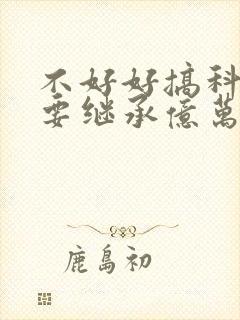 不好好搞科
要继承億萬
鹿島初